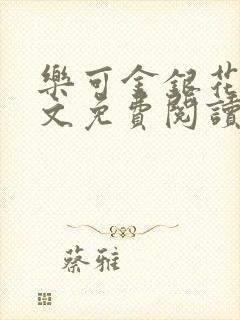 樂可金銀花
文免費閱讀
蔡雅